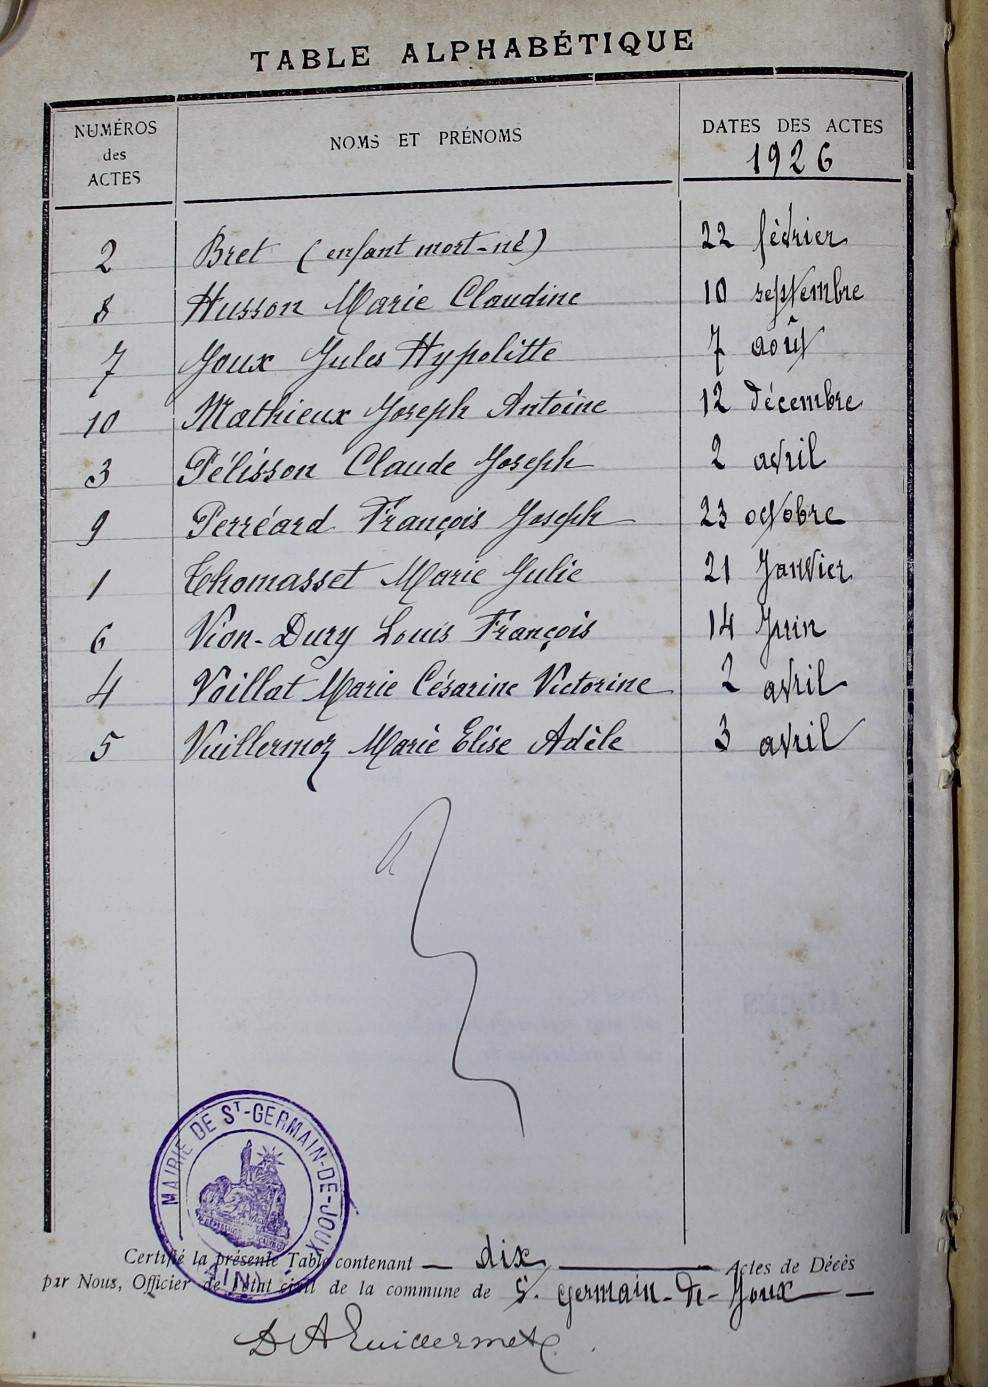 TABLE ALPHABÉTIQUE
NUMÉROS des ACTES
NOMS ET PRÉNOMS
DATES DES ACTES
1926
2 Bret (enfant mort-né) 22 février
8 Husson Marie Claudine 10 septembre
7 Joux Jules Hypolitte 7 août
10 Mathieux Joseph Antoine 12 décembre
3 Pélisson Claude Joseph 2 avril
9 Perréard François Joseph 23 octobre
1 Thomasset Marie Julie 21 Janvier
6 Vion-Dury Louis François 14 Juin
4 Voillat Marie Césarine Victorine 2 avril
5 Vuillermoz Marie Elise Adèle 3 avril
MAIRIE DE ST-GERMAIN-DE-JOUX
AIN
Certifié la présente Table contenant dix Actes de Décès
par Nous, Officier de l'état civil de la commune de St. Germain-de-Joux